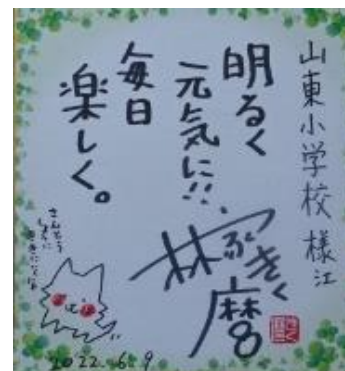 山東小学校様江
明るく
元気に!!
毎日
楽しく。
林家きく麿
2022.6.9